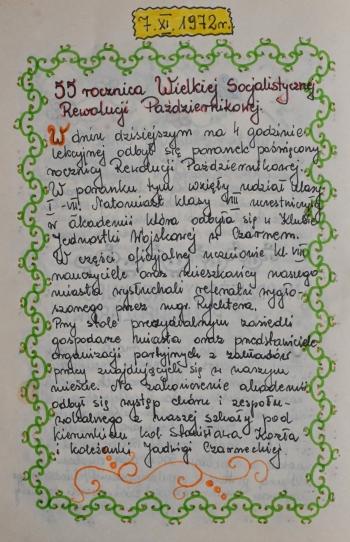 7.XI.1972r.
55 rocznica Wielkiej Socjalistycznej
Rewolucji Październikowej.
W dniu dzisiejszym na 4 godzinie
lekcyjnej odbył się poranek poświęcony
rocznicy Rewolucji Październikowej.
W poranku tym wzięły udział klasy
I-VII. Natomiast klasy VIII uczestniczyły
w akademii która odbyła się w Klubie
Jednostki Wojskowej w Czarnem.
W części oficjalnej uczniowie kl. VIII
nauczyciele oraz mieszkańcy naszego
miasta wysłuchali referatu wygło-
szonego przez mgr. Rychtera.
Przy stole prezydialnym zasiedli
gospodarze miasta oraz przedstawiciele
organizacji partyjnych z zakładów
pracy znajdujących się w naszym
mieście. Na zakończenie akademii
odbył się występ chóru i zespołu
wokalnego z naszej szkoły pod
kierunkiem kol. Stanisława Kozła
i koleżanki Jadwigi Czarneckiej.